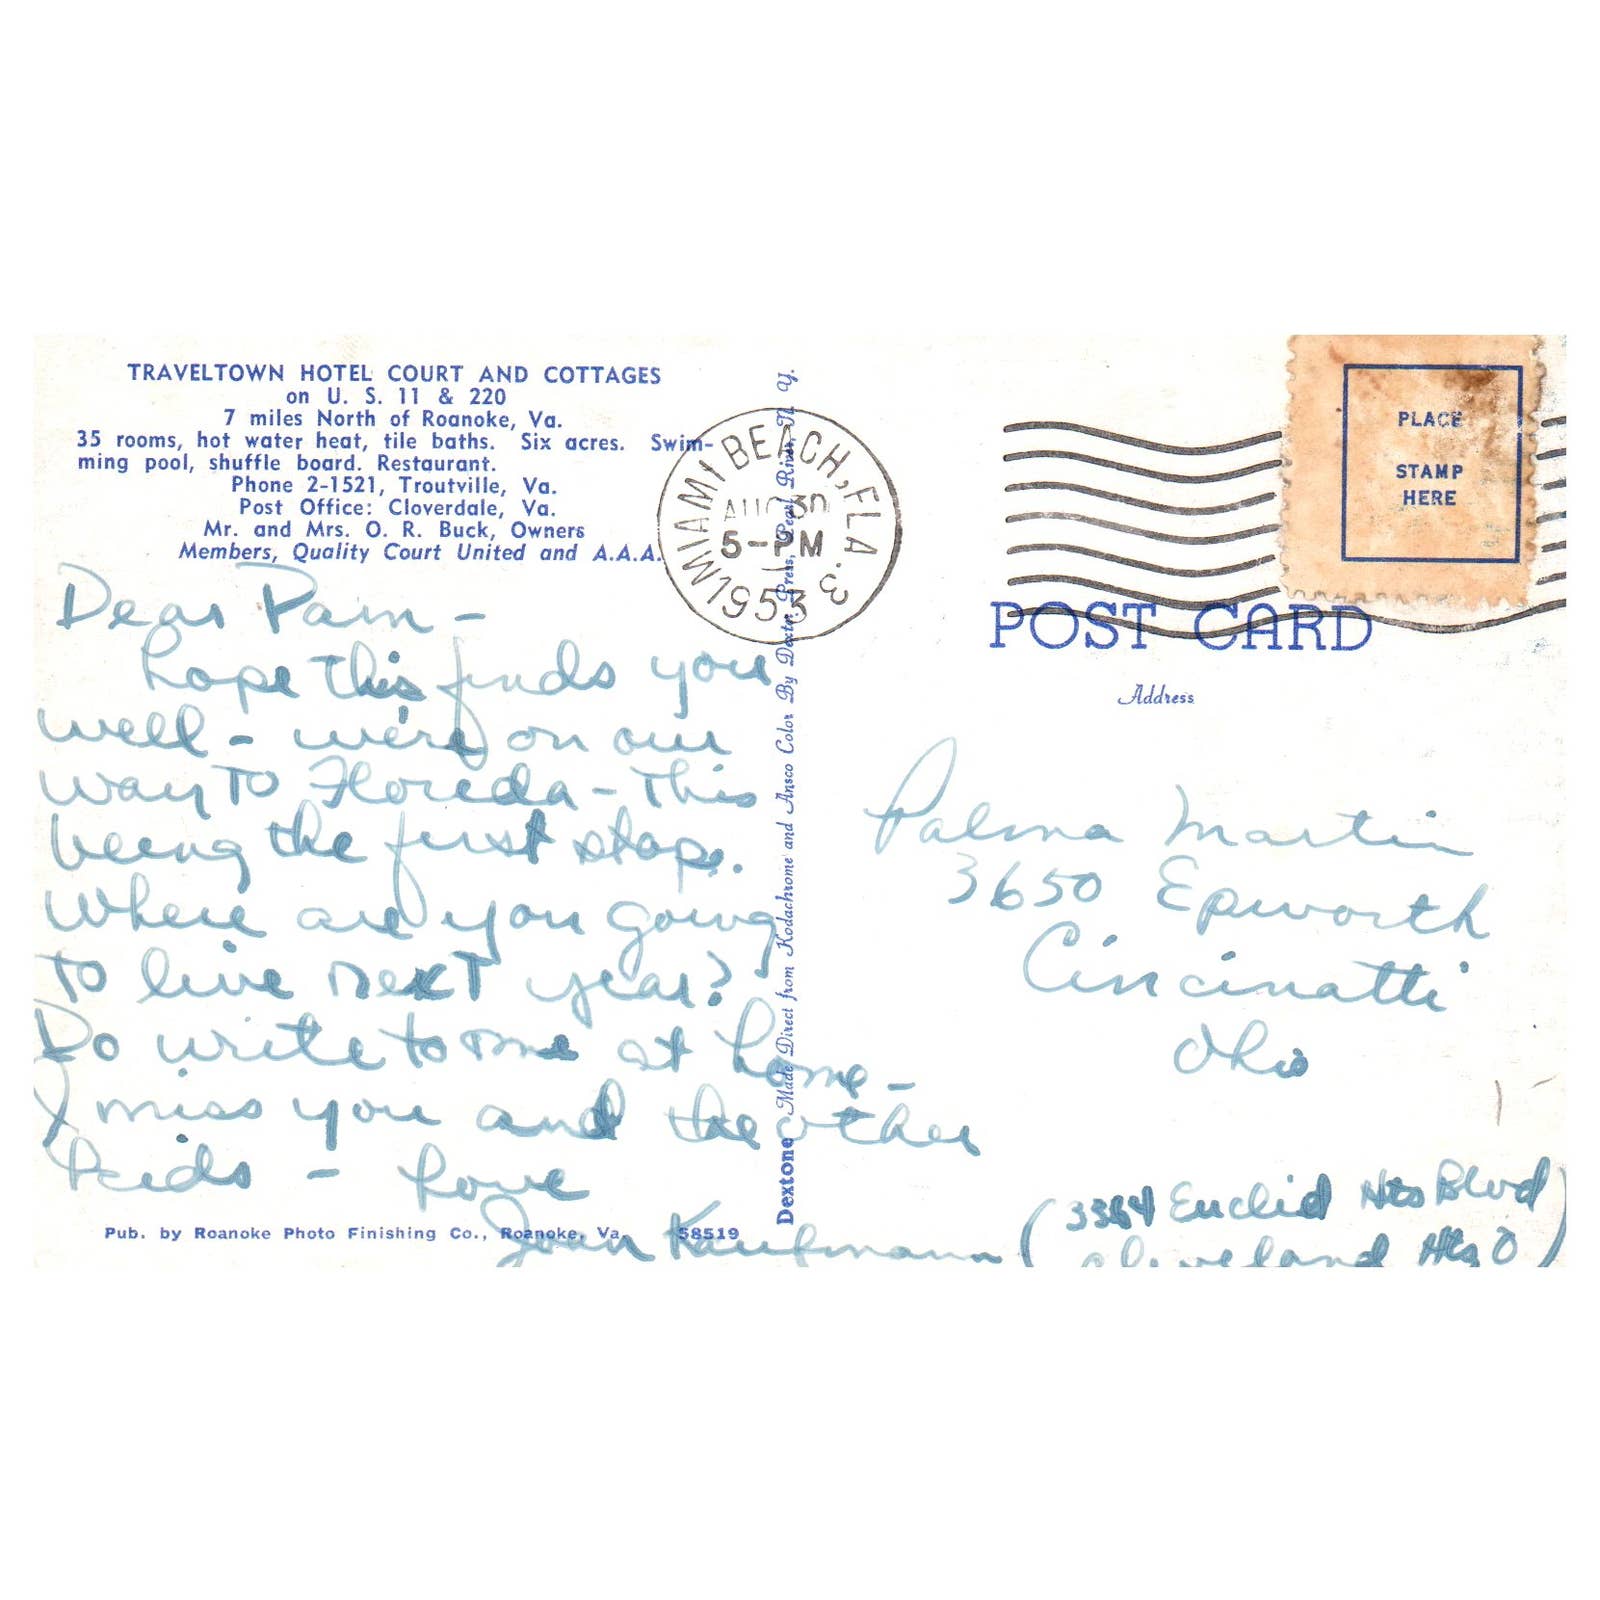 TRAVELTOWN HOTEL COURT AND COTTAGES
on U. S. 11 & 220
7 miles North of Roanoke, Va.
35 rooms, hot water heat, tile baths. Six acres. Swim-
ming pool, shuffle board. Restaurant.
Phone 2-1521, Troutville, Va.
Post Office: Cloverdale, Va.
Mr. and Mrs. O. R. Buck, Owners
Members, Quality Court United and A.A.A.
Dear Pam -
hope this finds you
well - we're on our
way to Floreda - this
being the first stop.
Where are you going
to live next year?
Do write to me at home -
I miss you and the other
kids - Love
Joan Kaufmann (3384 Euclid Hts Blvd
Cleveland Hts O)
Pub. by Roanoke Photo Finishing Co., Roanoke, Va. 58519
Dextone Made Direct from Kodachrome and Ansco Color By Dexter Press, Pearl River, N. Y.
MIAMI BEACH, FLA. 3
AUG 30
5-PM
1953
PLACE
STAMP
HERE
POST CARD
Address
Palma Martin
3650 Epworth
Cincinatti
Ohio